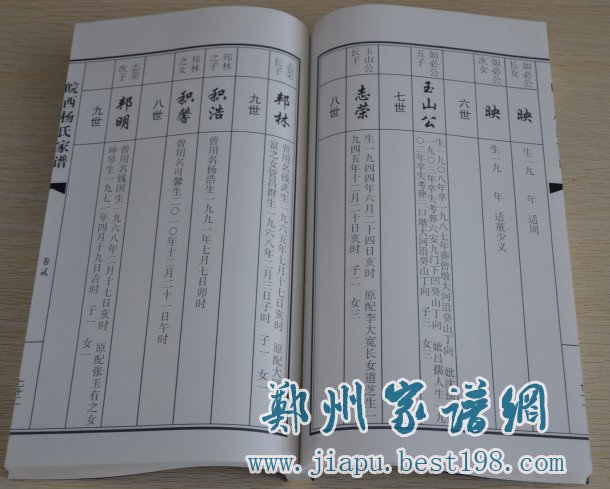 如必公
长女
映
生一九 年 适周
如必公
次女
映
生一九 年 适董少义
六世
如必公
五子
玉山公
生一九〇八年卒一九八七年葬曾墩大河沿癸山丁向
一九〇一年卒失考葬六安九门下凹癸山丁向 妣吕孺人生
〇二年卒失考葬一口塘大河沿癸山丁向 子三 女三
七世
玉山公
长子
志荣
生一九四四年六月二十四日亥时 原配李大宽长女道芝生一
九四五年十二月二十日亥时 子二 女三
八世
志荣
长子
邦林
曾用名钱武生一九六五年七月十七日亥时 原配大
富之女管昌群生一九六八年二月三日子时 子一 女二
九世
邦林
之子
积浩
曾用名杨浩生一九九一年七月七日卯时
邦林
之女
积馨
曾用名可馨生二〇一〇年十二月二十一日午时
八世
志荣
次子
邦明
曾用名钱国生一九六八年二月十七日亥时 原配张玉有之女
坤琴生一九七一年四月十九日吉时 子一 女一
九世
皖西杨氏家谱
卷贰
七十二
郑州家谱網
www.jiapu.best198.com